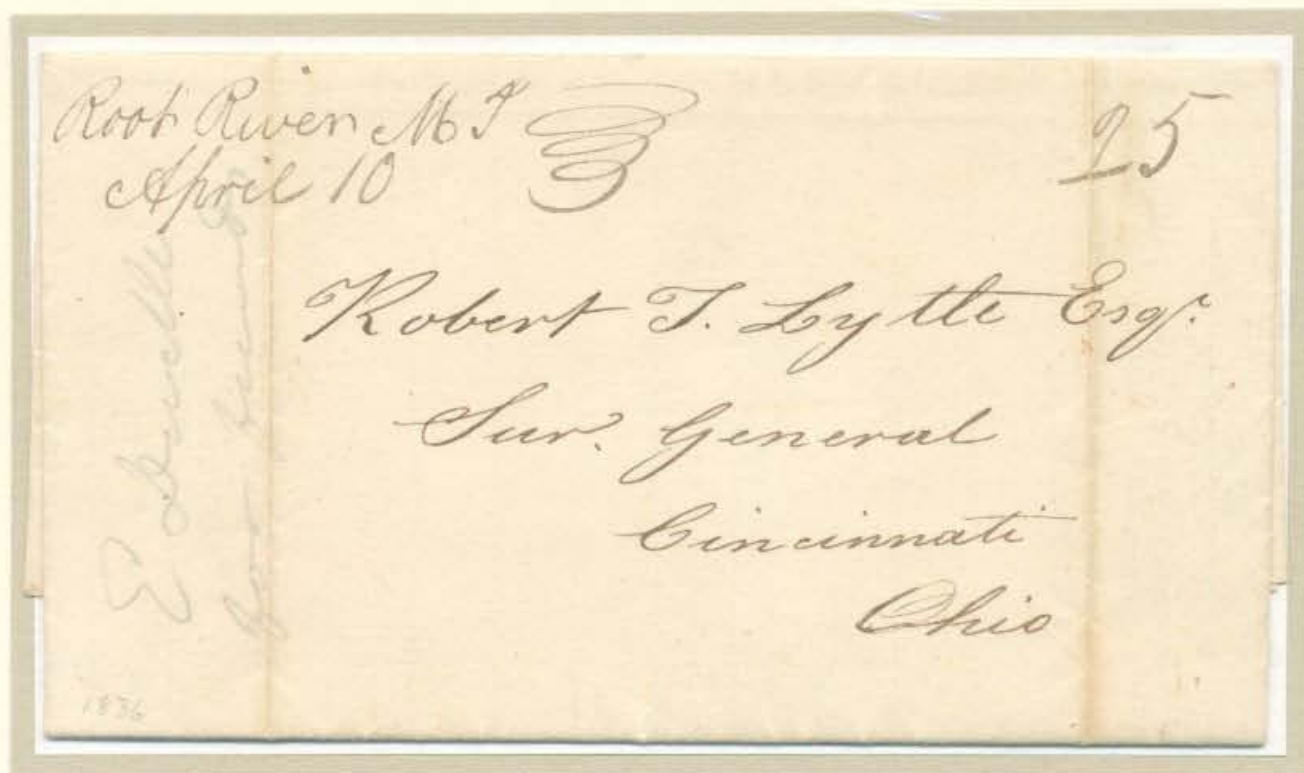 Root River M T
April 10
25
Robert T. Lytle Esqr.
Sur. General
Cincinnati
Ohio
E
for
1836